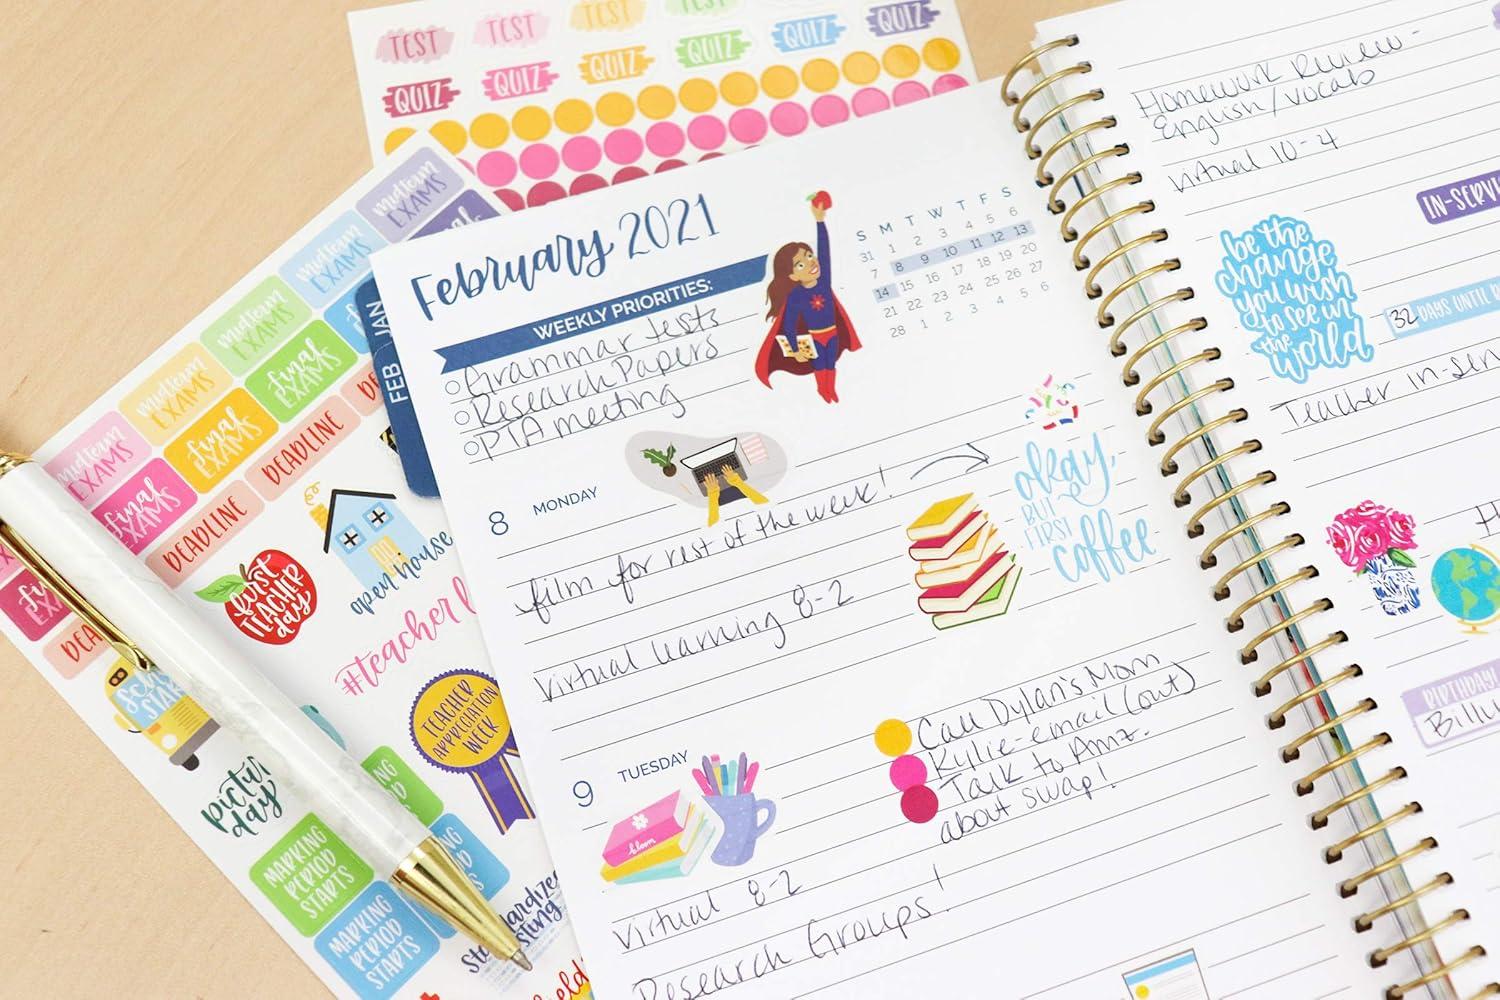 TEST
TEST
TEST
TEST
QUIZ
QUIZ
QUIZ
QUIZ
QUIZ
QUIZ
midterm
EXAMS
midterm
EXAMS
midterm
EXAMS
midterm
EXAMS
midterm
EXAMS
final
EXAMS
final
EXAMS
final
EXAMS
DEADLINE
DEADLINE
first
TEACHER
day
open house
#teacher
TEACHER
APPRECIATION
WEEK
day
MARKING
PERIOD
STARTS
MARKING
PERIOD
STARTS
JAN
FEB
February 2021
WEEKLY PRIORITIES:
Grammar tests
Research Papers
PTA meeting
S M T W T F S
31 1 2 3 4 5 6
7 8 9 10 11 12 13
14 15 16 17 18 19 20
21 22 23 24 25 26 27
28 1 2 3 4 5 6
8 MONDAY
film for rest of the week!
virtual learning 8-2
okay,
BUT
FIRST
coffee
9 TUESDAY
bloom
Call Dylan's Mom
Kylie-email (out)
Talk to Amz.
about swap!
virtual 8-2
Research Groups!
Homework Review-
English/vocab
virtual 10-4
be the
change
you wish
to see in
the
world
32 DAYS UNTIL
Teacher in-
BIRTHDAY
Billy